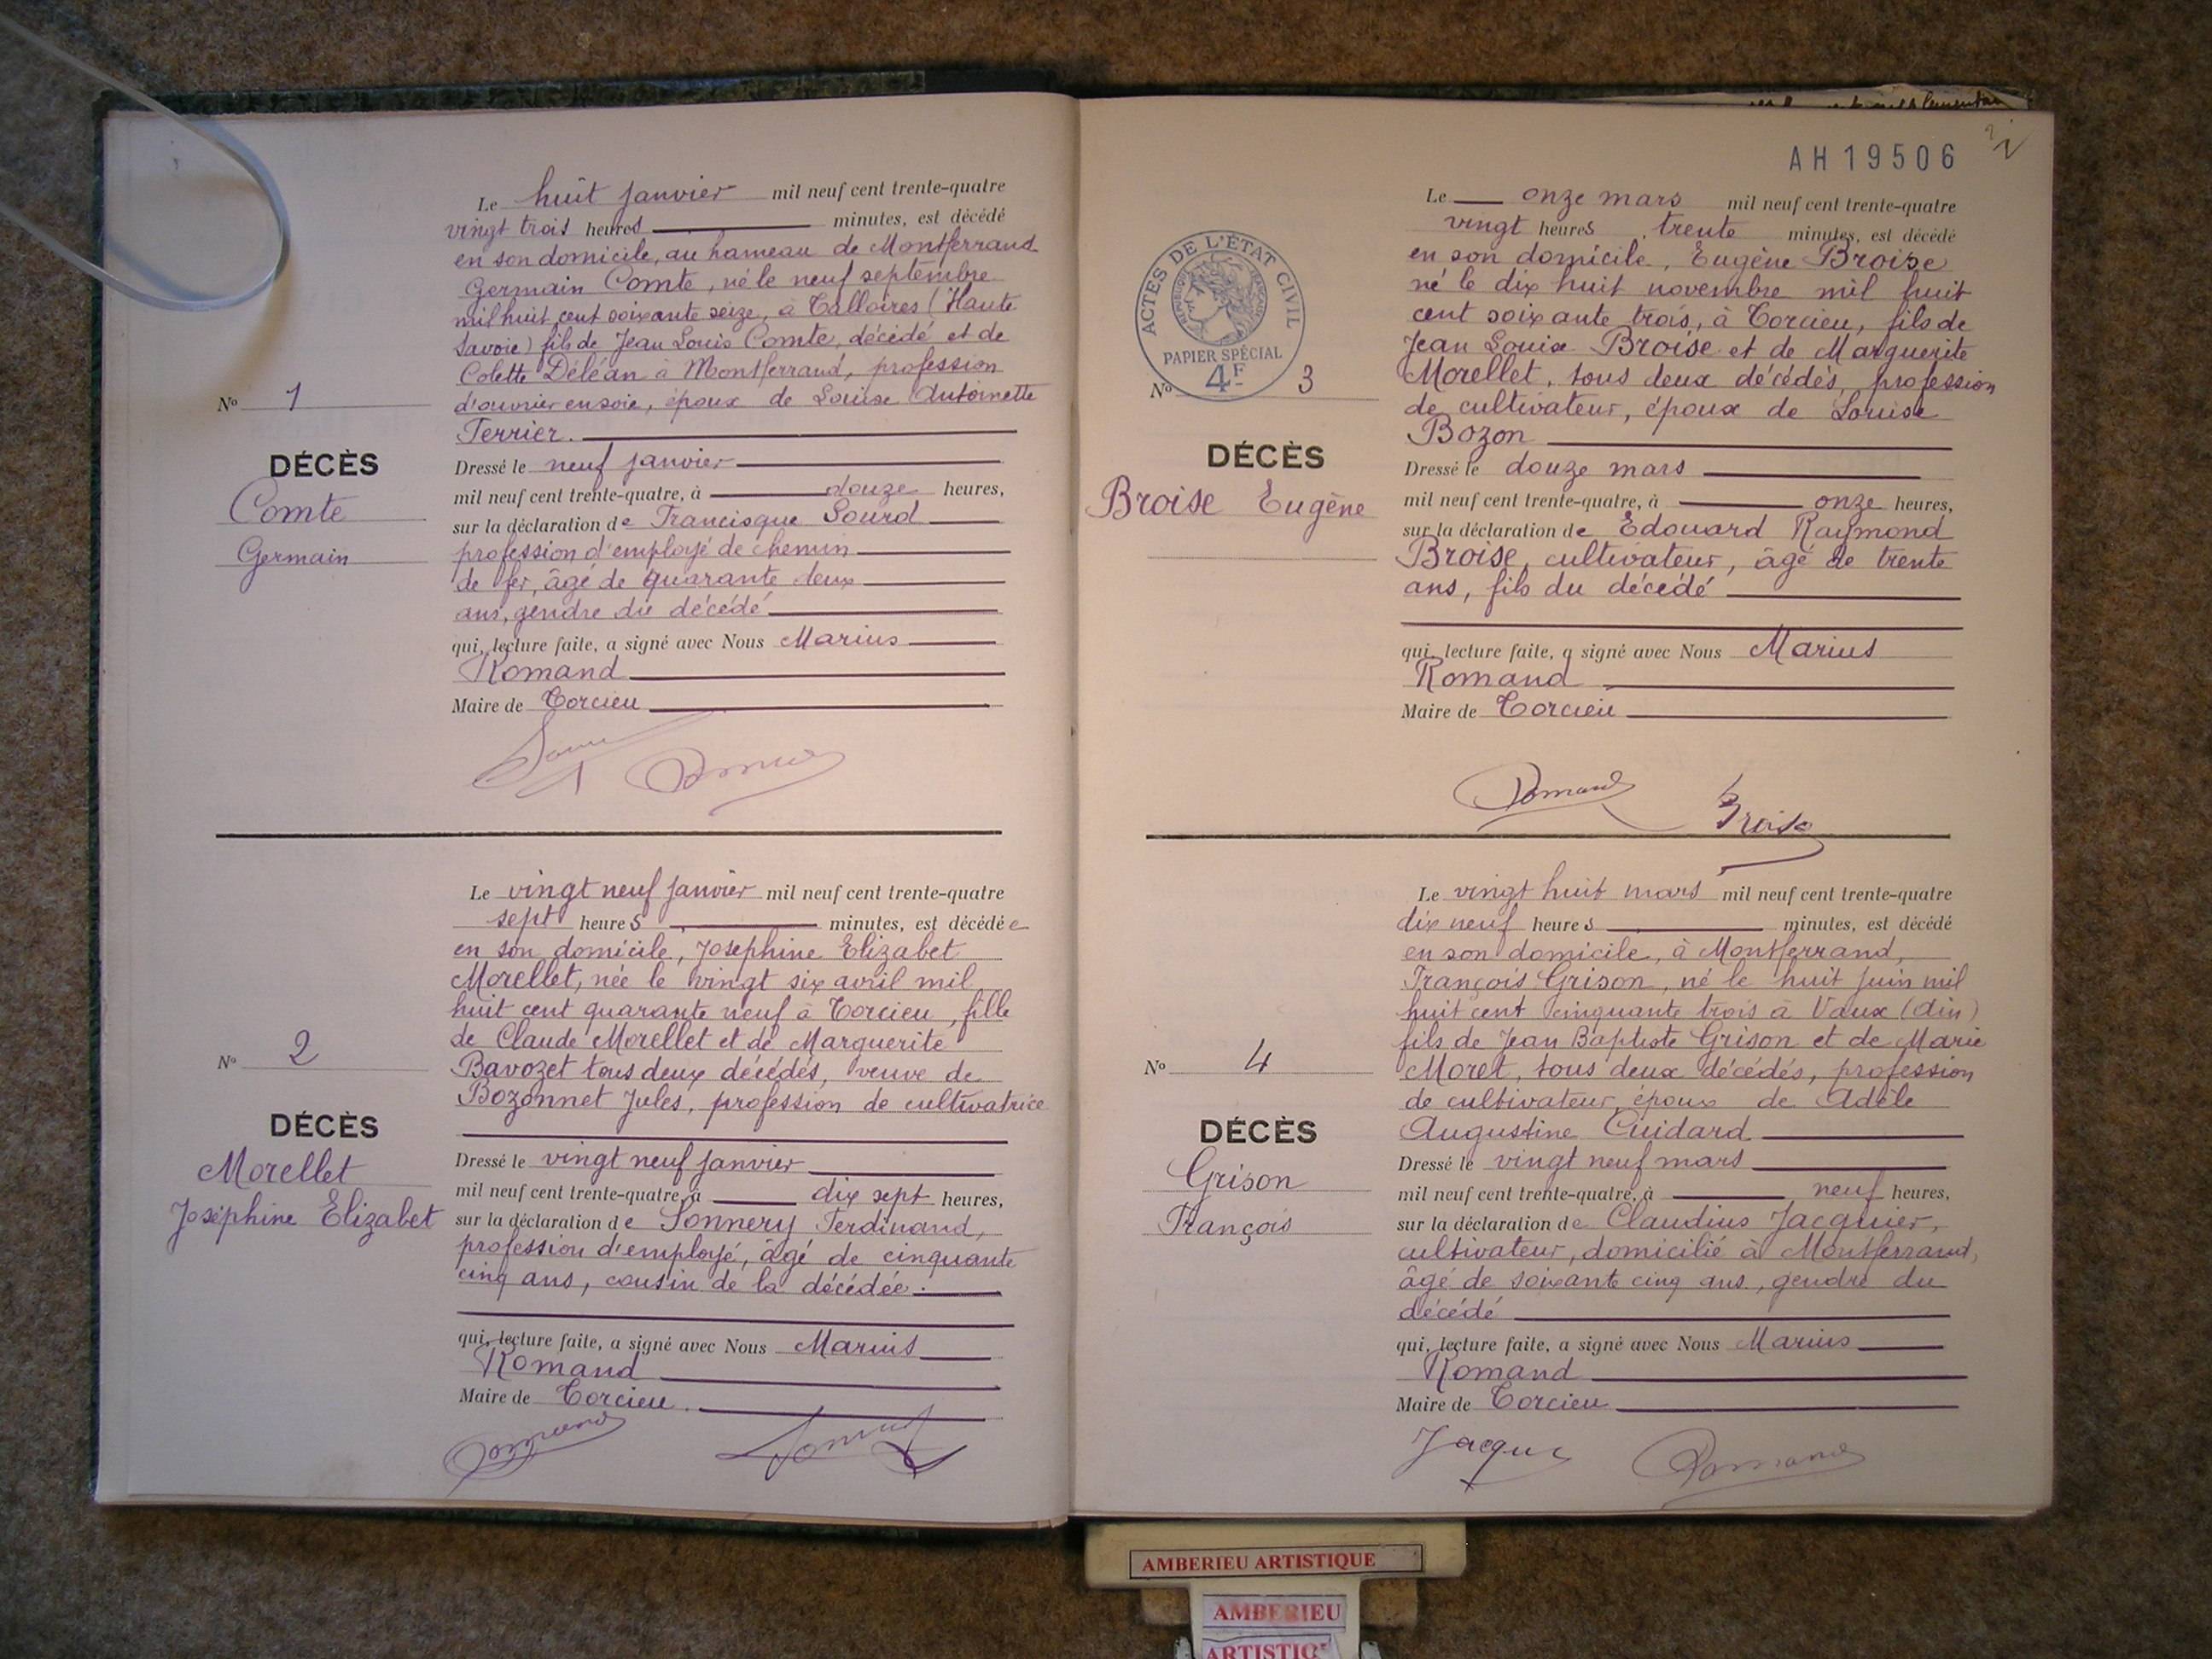 Le huit janvier mil neuf cent trente-quatre
vingt trois heures minutes, est décédé
en son domicile, au hameau de Montferrand
Germain Comte, né le neuf septembre
mil huit cent soixante seize, à Talloires (Haute
Savoie) fils de Jean Louis Comte, décédé et de
Colette Déléan à Montferrand, profession
d'ouvrier en soie, époux de Louise Antoinette
Terrier.
N° 1
DÉCÈS
Comte
Germain
Dressé le neuf janvier
mil neuf cent trente-quatre, à douze heures,
sur la déclaration de Francisque Sourd
profession d'employé de chemin
de fer, âgé de quarante deux
ans, gendre du décédé
qui, lecture faite, a signé avec Nous Marius
Romand
Maire de Torcieu
Le vingt neuf janvier mil neuf cent trente-quatre
sept heures minutes, est décédée
en son domicile, Joséphine Elizabet
Morellet, née le vingt six avril mil
huit cent quarante neuf à Torcieu, fille
de Claude Morellet et de Marguerite
Bavozet tous deux décédés, veuve de
Bozonnet Jules, profession de cultivatrice
N° 2
DÉCÈS
Morellet
Joséphine Elizabet
Dressé le vingt neuf janvier
mil neuf cent trente-quatre, à dix sept heures,
sur la déclaration de Sonnery Ferdinand,
profession d'employé, âgé de cinquante
cinq ans, cousin de la décédée.
qui, lecture faite, a signé avec Nous Marius
Romand
Maire de Torcieu.
Romand
AH 19506
Le onze mars mil neuf cent trente-quatre
vingt heures trente minutes, est décédé
en son domicile, Eugène Broise
né le dix huit novembre mil huit
cent soixante trois, à Torcieu, fils de
Jean Louis Broise et de Marguerite
Morellet, tous deux décédés, profession
de cultivateur, époux de Louise
Bozon
ACTES DE L'ÉTAT CIVIL
PAPIER SPÉCIAL
4F
N° 3
DÉCÈS
Broise Eugène
Dressé le douze mars
mil neuf cent trente-quatre, à onze heures,
sur la déclaration de Edouard Raymond
Broise, cultivateur, âgé de trente
ans, fils du décédé
qui, lecture faite, a signé avec Nous Marius
Romand
Maire de Torcieu
Romand Broise
Le vingt huit mars mil neuf cent trente-quatre
dix neuf heures minutes, est décédé
en son domicile, à Montferrand,
François Grison, né le huit juin mil
huit cent cinquante trois à Vaux (Ain)
fils de Jean Baptiste Grison et de Marie
Moret, tous deux décédés, profession
de cultivateur, époux de Adèle
Augustine Cuidard
N° 4
DÉCÈS
Grison
François
Dressé le vingt neuf mars
mil neuf cent trente-quatre, à neuf heures,
sur la déclaration de Claudius Jacquier,
cultivateur, domicilié à Montferrand,
âgé de soixante cinq ans, gendre du
décédé
qui, lecture faite, a signé avec Nous Marius
Romand
Maire de Torcieu
Romand
AMBERIEU ARTISTIQUE
AMBERIEU
ARTISTIQ